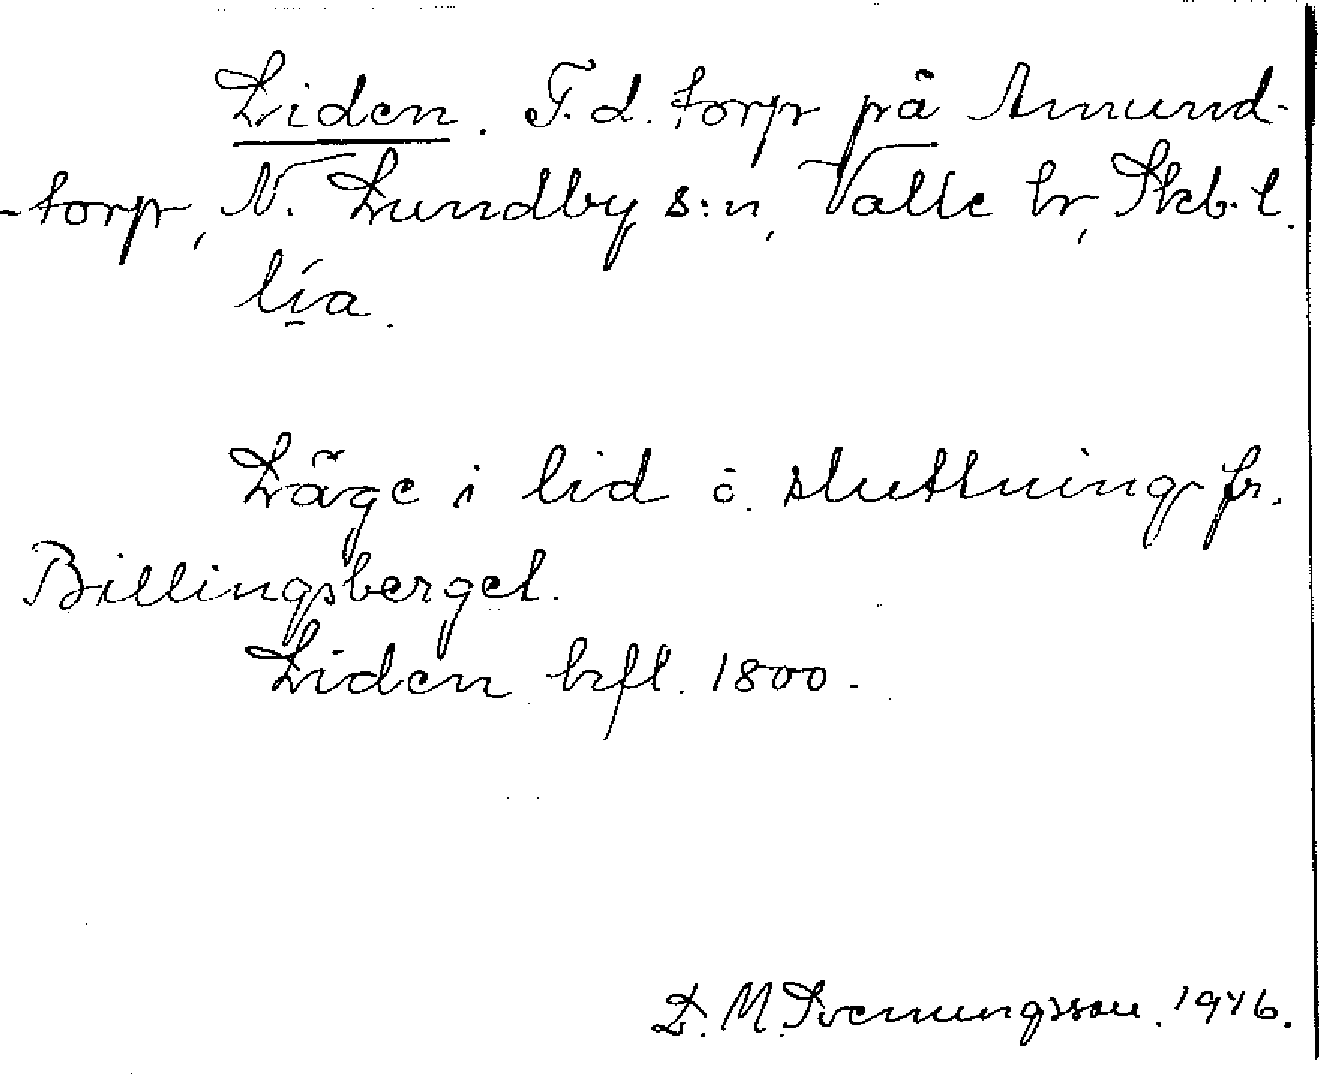 Liden. F.d. torp på Amund-
-torp, N. Lundby s:n, Valle hr, Skb. l.
lía.
Läge i lid ö. sluttning fr.
Billingsberget.
Liden hfl. 1800.
D. M. Svenungsson. 1946.